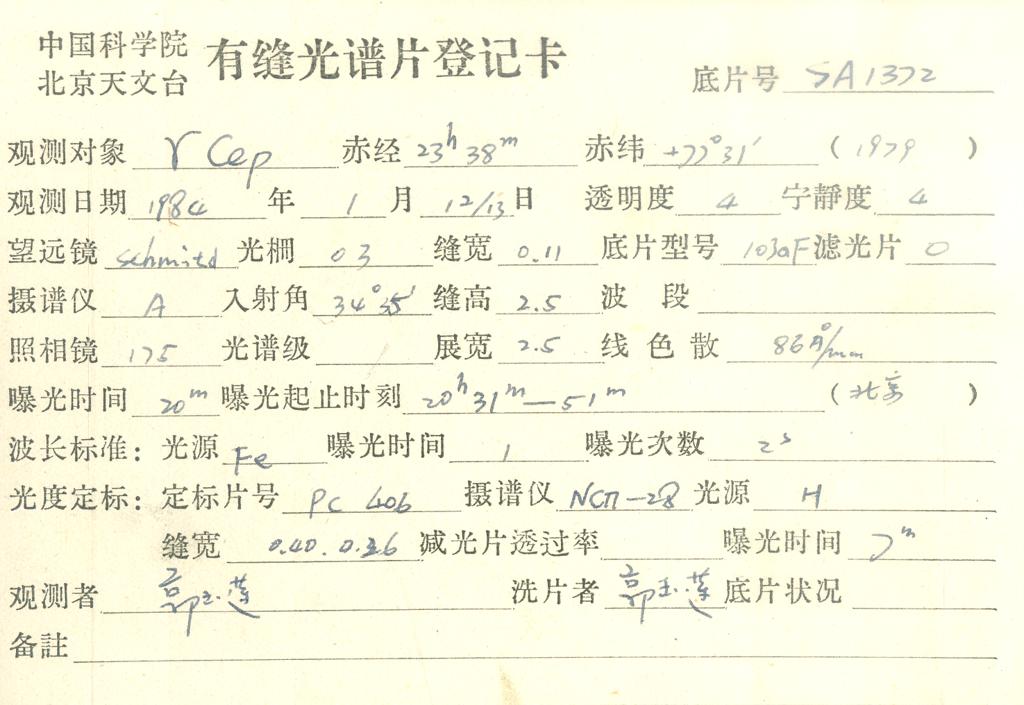 中国科学院
北京天文台
有缝光谱片登记卡
底片号 SA1372
观测对象 γ Cep 赤经 23h 38m 赤纬 +77°31′ ( 1979 )
观测日期 1984 年 1 月 12/13 日 透明度 4 宁静度 4
望远镜 schmitd 光栅 03 缝宽 0.11 底片型号 103aF 滤光片 0
摄谱仪 A 入射角 34°35′ 缝高 2.5 波段
照相镜 175 光谱级 展宽 2.5 线色散 86Å/mm
曝光时间 20m 曝光起止时刻 20h 31m—51m ( 北京 )
波长标准: 光源 Fe 曝光时间 1 曝光次数 2s
光度定标: 定标片号 PC 406 摄谱仪 光源 H
缝宽 0.40. 减光片透过率 曝光时间
观测者 郭玉莲 洗片者 郭玉莲 底片状况
备註